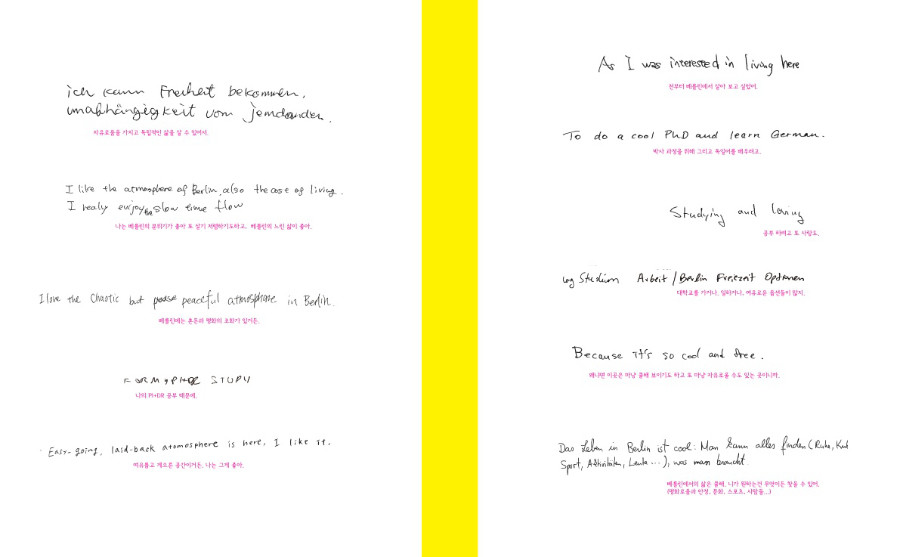 ich kann Freiheit bekommen.
unabhängigkeit vom jemdanden.
자유로움을 가지고 독립적인 삶을 살 수 있어서.
I like the atmosphere of Berlin, also the cost of living.
I realy enjoy the slow time flow
나는 베를린의 분위기가 좋아 또 살기 저렴하기도하고, 베를린의 느린 삶이 좋아.
I love the Chaotic but peaceful atmosphere in Berlin.
베를린에는 혼돈과 평화의 조화가 있거든.
FOR MY PHD STUDY
나의 PHD와 공부 때문에.
Easy-going, laid-back atomosphere is here, I like it.
여유롭고 게으른 공간이거든, 나는 그게 좋아.
As I was interested in living here
전부터 베를린에서 살아 보고 싶었어.
To do a cool PhD and learn German.
박사 과정을 위해 그리고 독일어를 배우려고.
Studying and loving
공부 하려고 또 사랑도.
Studium Arbeit / Berlin Freizeit Optionen
대학교를 가거나, 일하거나, 여유로운 옵션들이 많지.
Because it's so cool and free.
왜냐면 이곳은 마냥 쿨해 보이기도 하고 또 마냥 자유로울 수도 있는 곳이니까.
Das Leben in Berlin ist cool: Man kann alles finden (Ruhe,
Sport, Aktivitäten, Leute ...), was man braucht
베를린에서의 삶은 쿨해, 니가 원하는건 무엇이든 찾을 수 있어.
(평화로움과 안정, 문화, 스포츠, 사람들...)